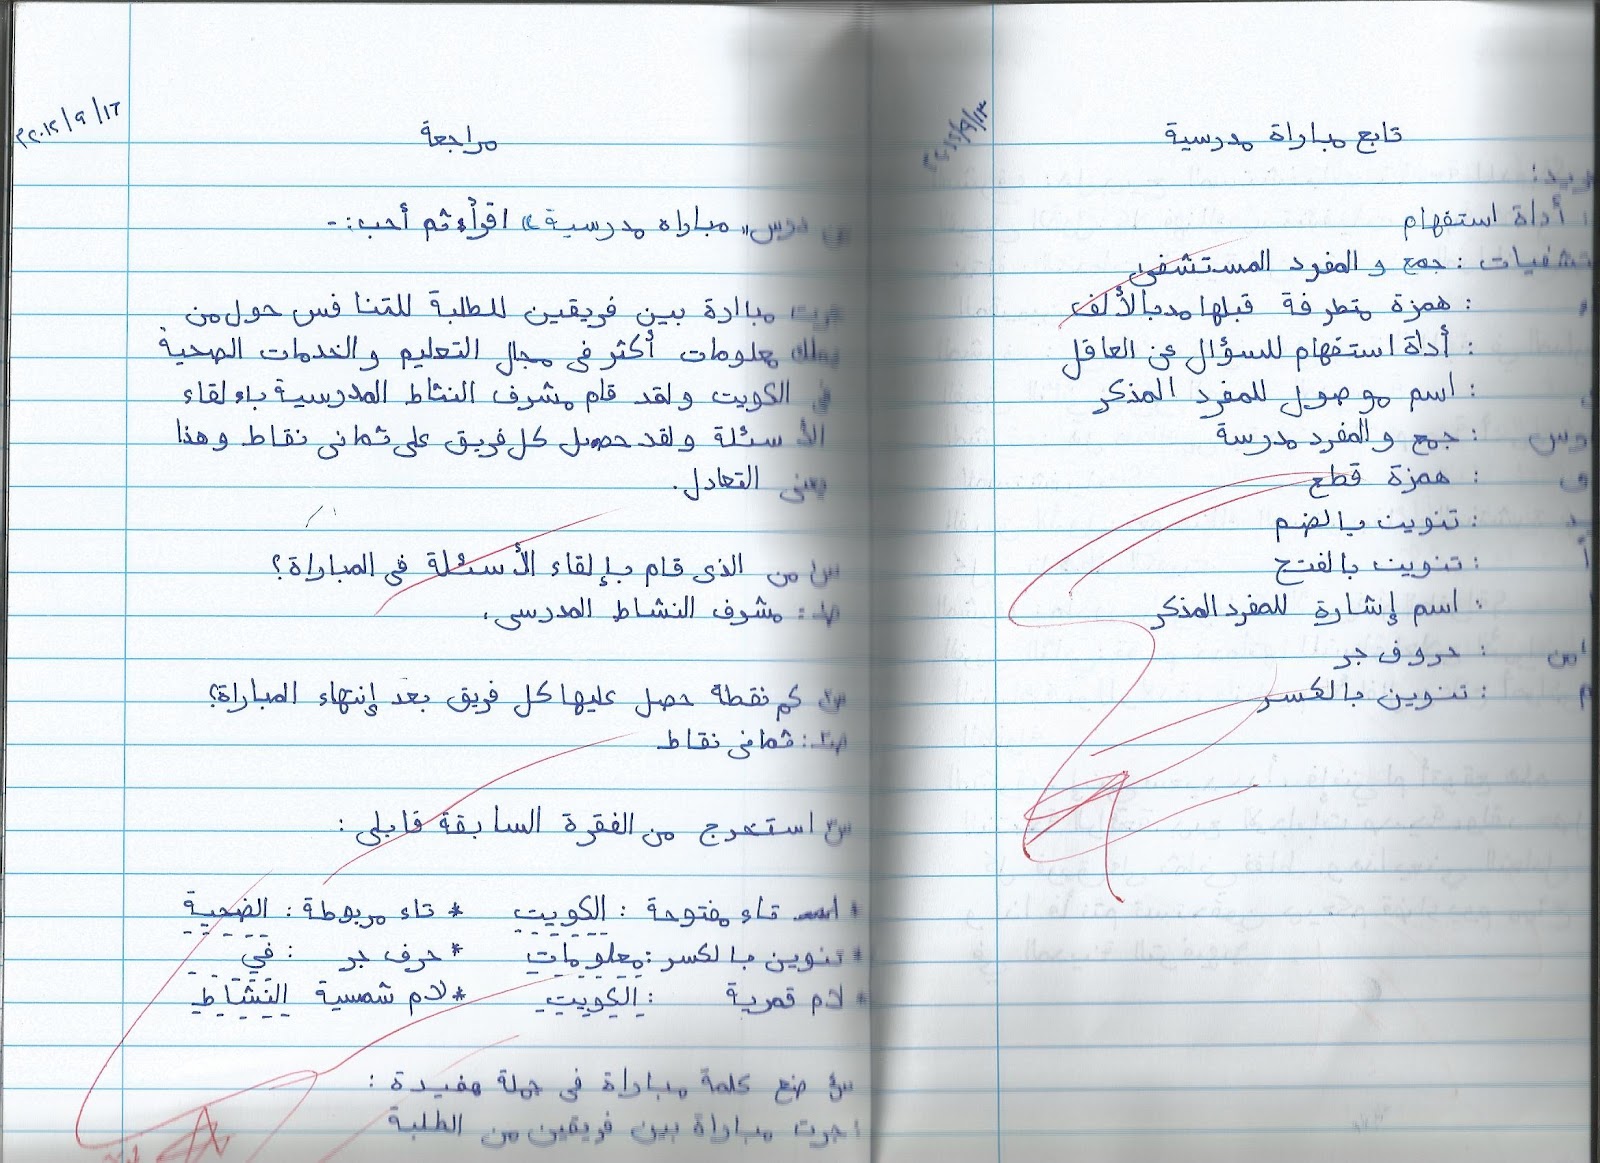 تابع مباراة مدرسية
أداة استفهام
: جمع والمفرد المستشفى
: همزة متطرفة قبلها مد بالألف
: أداة استفهام للسؤال عن العاقل
: اسم موصول للمفرد المذكر
: جمع والمفرد مدرسة
: همزة قطع
: تنوين بالضم
: تنوين بالفتح
: اسم إشارة للمفرد المذكر
: حروف جر
: تنوين بالكسر
مراجعة
درس " مباراه مدرسية " اقرأ ثم أجب :-
جرت مباادة بين فريقين للطلبة للتنافس حول من
يملك معلومات أكثر في مجال التعليم والخدمات الصحية
في الكويت ولقد قام مشرف النشاط المدرسية بإلقاء
الأسئلة ولقد حصل كل فريق على ثماني نقاط وهذا
يعني التعادل.
س١ من الذي قام بإلقاء الأسئلة في المباراة؟
جـ١: مشرف النشاط المدرسي.
س٢ كم نقطة حصل عليها كل فريق بعد إنتهاء المباراة؟
جـ٢: ثماني نقاط
س٣ استخرج من الفقرة السابقة مايلي:
* تاء مفتوحة : الكويت * تاء مربوطة : الصحية
* تنوين بالكسر : معلومات * حرف جر : في
* لام قمرية : الكويت * لام شمسية النشاط
س٤ ضع كلمة مباراة في جملة مفيدة :
اجرت مباراة بين فريقين من الطلبة